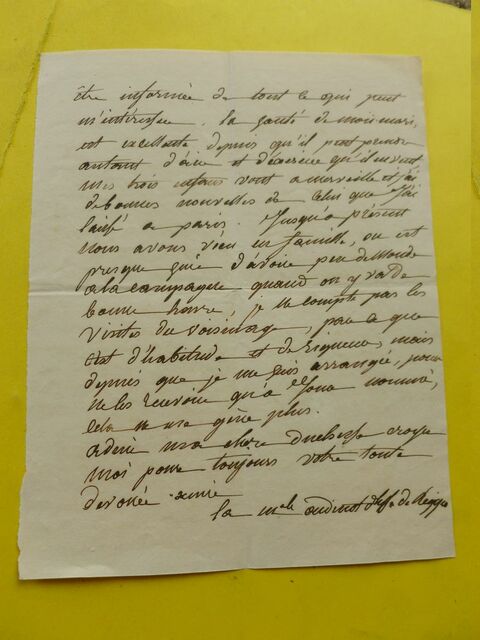 être informée de tout ce qui peut
m'intéresser. la santé de mon mari,
est excellente depuis qu'il peut prendre
autant d'air et d'exercice qu'il en veut
mes trois enfans vont a merveille et j'ai
de bonnes nouvelles de celui que j'ai
laissé a paris. jusqu'a présent
nous avons vécu en famille, on est
presque gêné d'avoir peu de monde
a la campagne quand on y va de
bonne heure, je ne compte pas les
visites du voisinage, parce que
c'est d'habitude et de rigueur, mais
depuis que je me suis arrangée, pour
ne les recevoir qu'a jour nommé,
cela ne me gêne plus.
adieu ma chere duchesse croyez
moi pour toujours votre toute
dévouée amie
la male oudinot dsse de Reggio